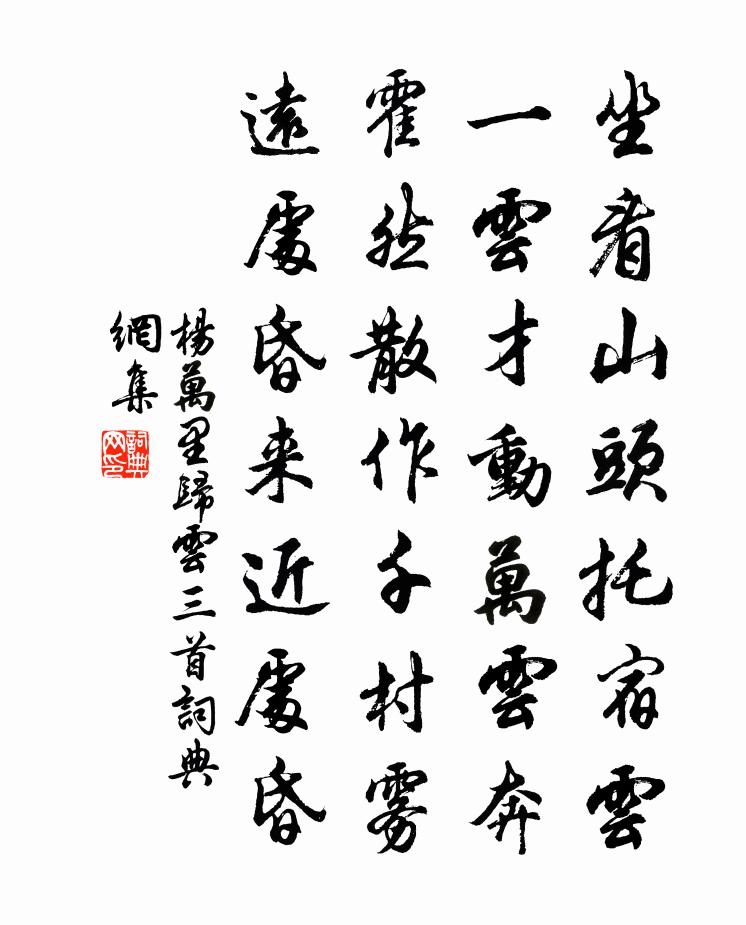 坐看山頭托宿雲
一雲才動萬雲奔
霍然散作千村霧
遠處昏来近處昏
楊萬里歸雲三首詞典
網集
詞典
网印